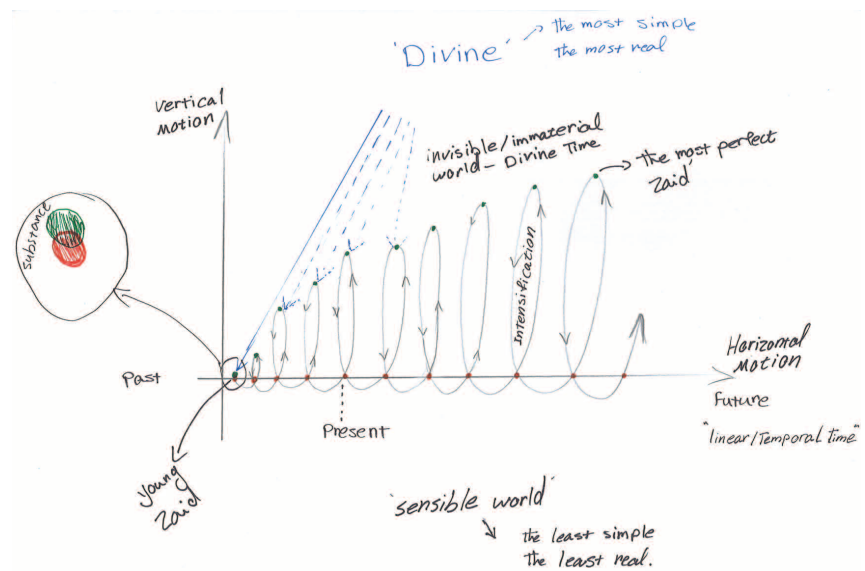 'Divine'
the most simple
the most real
vertical
motion
invisible/immaterial
world - Divine Time
the most perfect
zaid
substance
Intensification
Past
Present
Horizontal
Motion
Future
"linear/Temporal time"
young
zaid
'sensible world'
the least simple
the least real.